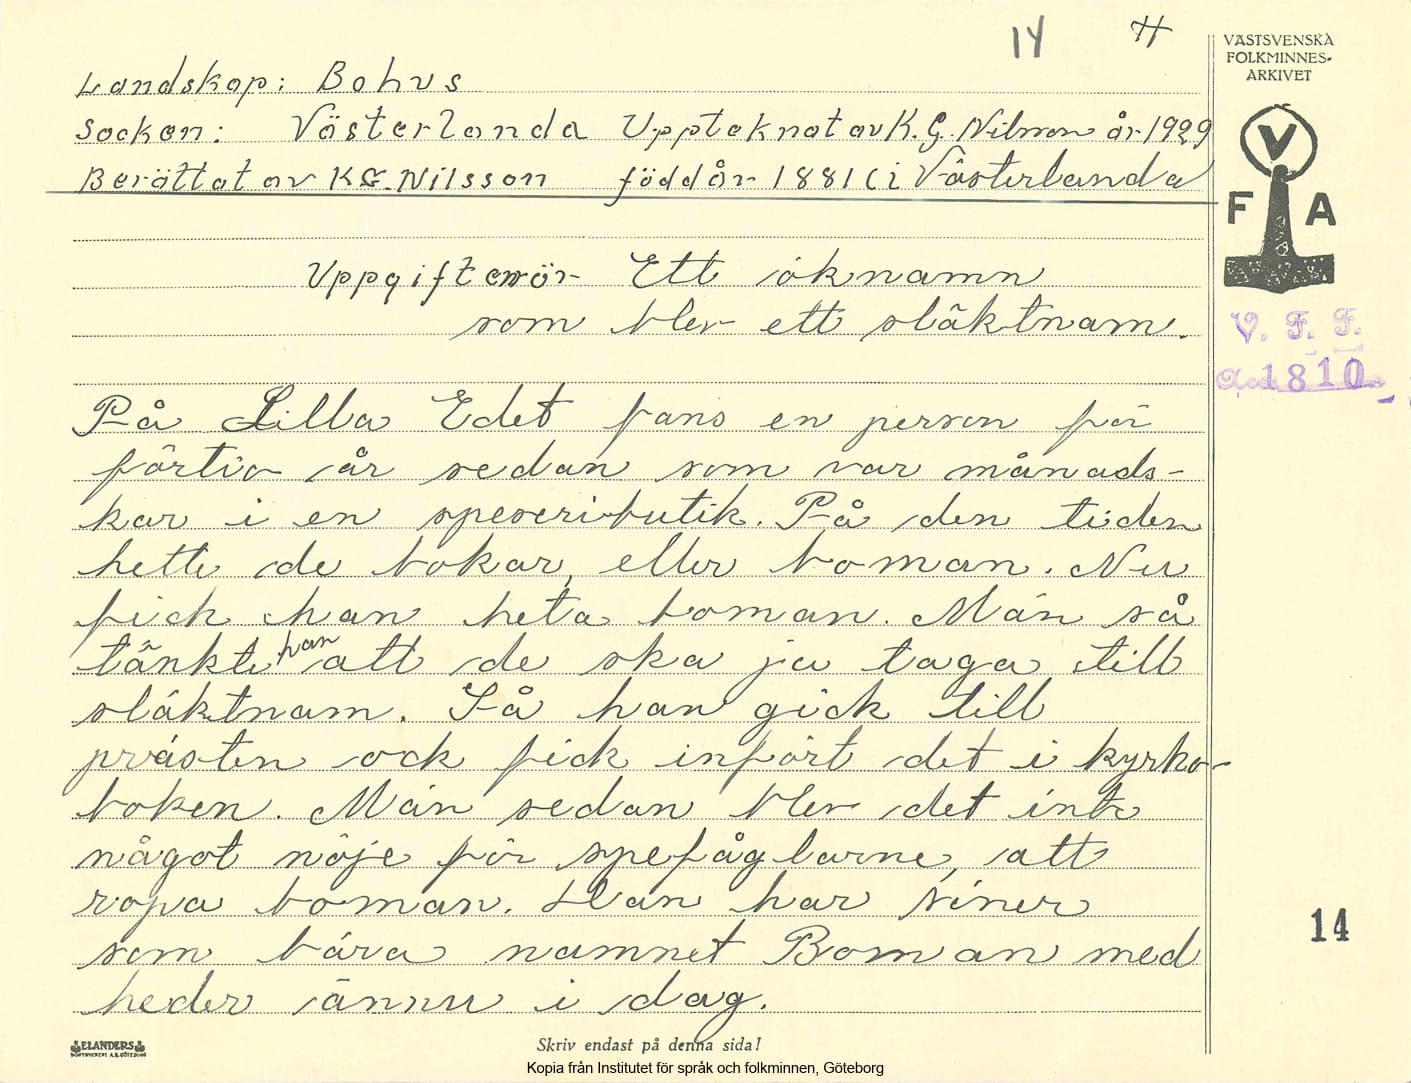 14 H
VÄSTSVENSKA
FOLKMINNES-
ARKIVET
Landskap: Bohus
Socken: Västerlanda Uppteknat av K. G. Nilsson år 1929
Berättat av K G. Nilsson född år 1881 i Västerlanda
V
F A
Uppgiften rör Ett öknamn
som blev ett släktnamn.
V. F. F.
1810
På Lilla Edet fans en person för
förtio år sedan som var månads-
kar i en speseributik. På den tiden
hette de bokar, eller boman. Nu
fick han heta boman. Män så
tänkte han att de ska ja taga till
släktnam. Så han gick till
prästen ock fick infört det i kyrko-
boken. Män sedan blev det inte
något nöje för spefåglarne, att
ropa boman. Han har söner
som bära namnet Boman med
heder ännu i dag.
14
ELANDERS
Skriv endast på denna sida!
Kopia från Institutet för språk och folkminnen, Göteborg